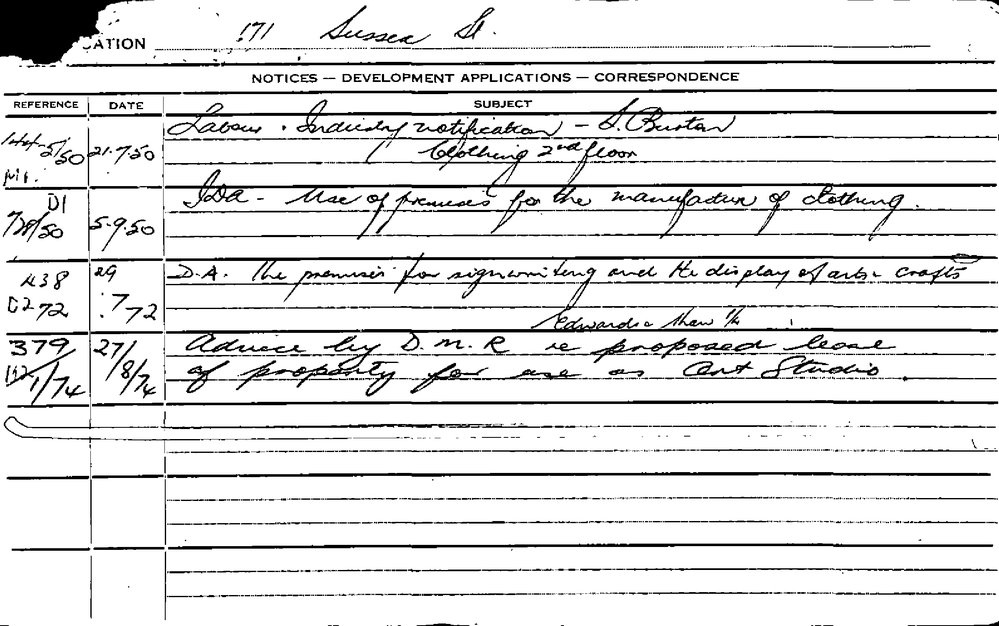 CATION 171 Sussex St.
NOTICES — DEVELOPMENT APPLICATIONS — CORRESPONDENCE
REFERENCE DATE SUBJECT
Labour & Industry notification – S. Burton
5/50 21.7.50 Clothing 2nd floor
D1 IDA - Use of premises for the manufacture of clothing.
/50 5.9.50
438 29 D.A. the premises for signwriting and the display of arts & crafts
72 7 72
Edwards & Shaw P/L
379 27/ Advice by D.M.R re proposed lease
1/74 8/74 of property for use as Art Studio.